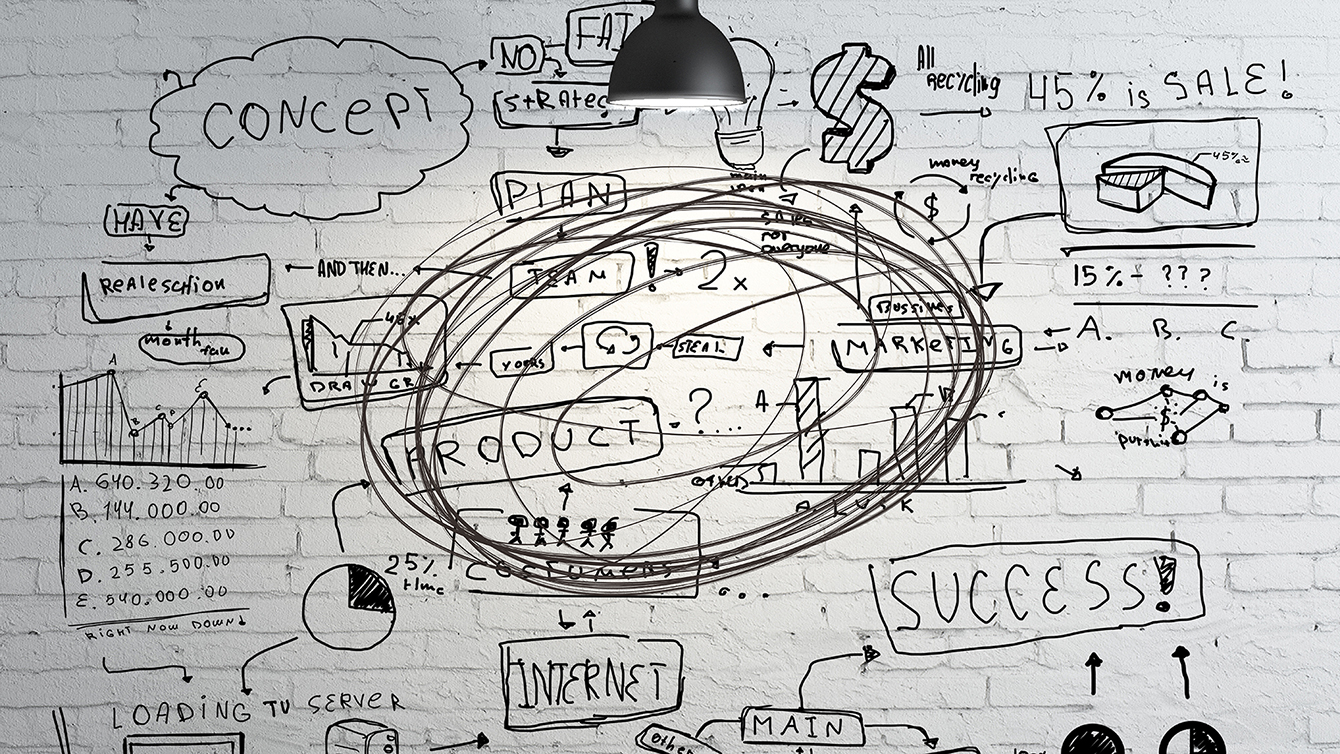 CONCEPT
NO
FAI
STRATEG
All
RECYCLING
45% is SALE!
PLAN
main
money
recycling
$
45%
HAVE
not
everyone
AND THEN...
TEAM ! 2x
15% - ???
month
BUSSINES
MARKETING
A. B. C
STEAL
YOURS
DRAW GR
money is
$
A
B
C
A
PRODUCT ?....
others
A. 640.320.00
B. 144.000.00
C. 286.000.00
D. 255.500.00
E. 540.000.00
RIGHT NOW DOWN
25%
COSTUMERS
...
SUCCESS!
INTERNET
LOADING TV SERVER
MAIN
other